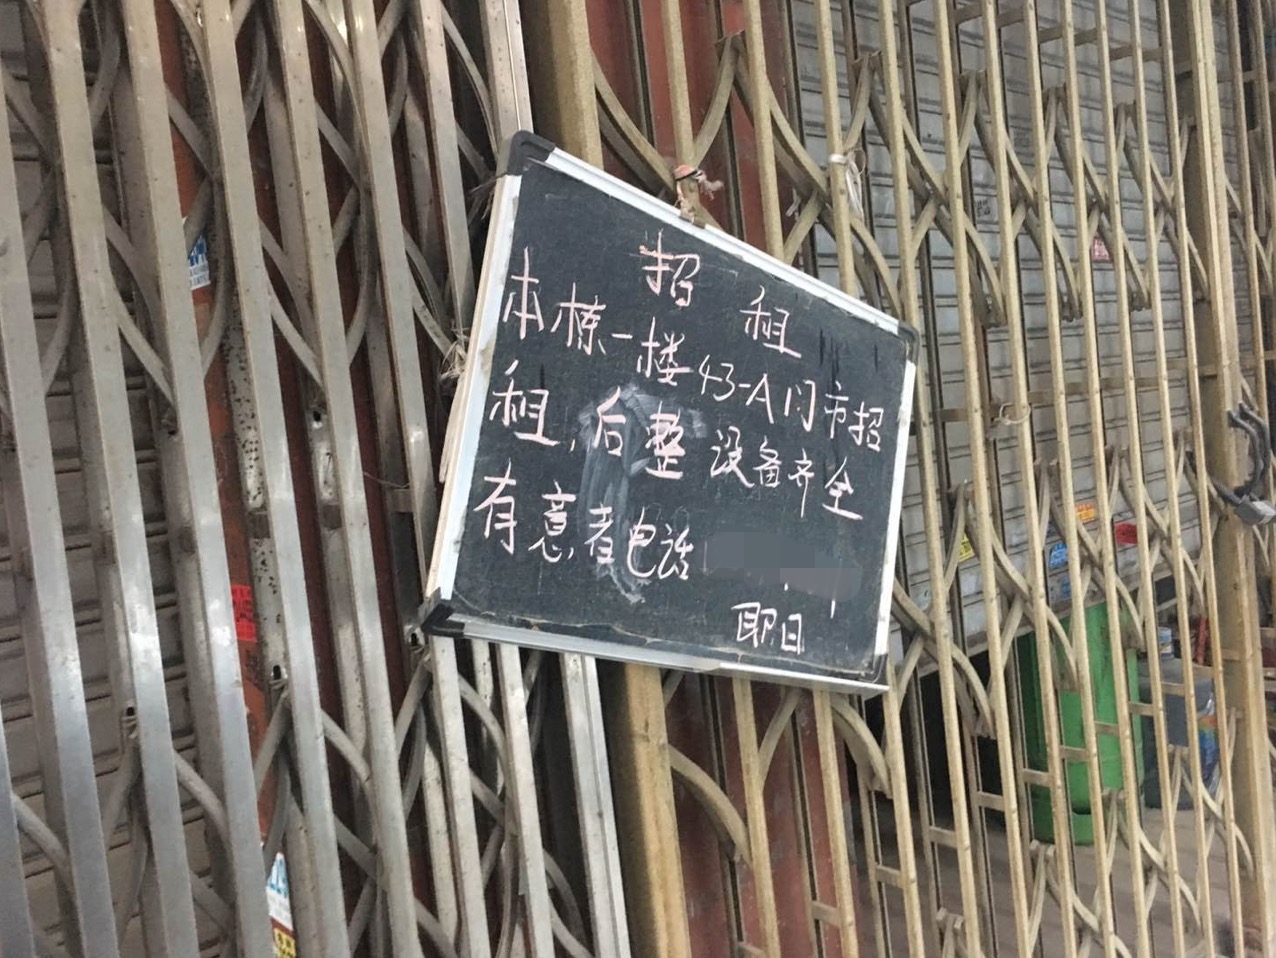 招租
本栋一楼43-A门市招
租,后整设备齐全
有意者电话
即日